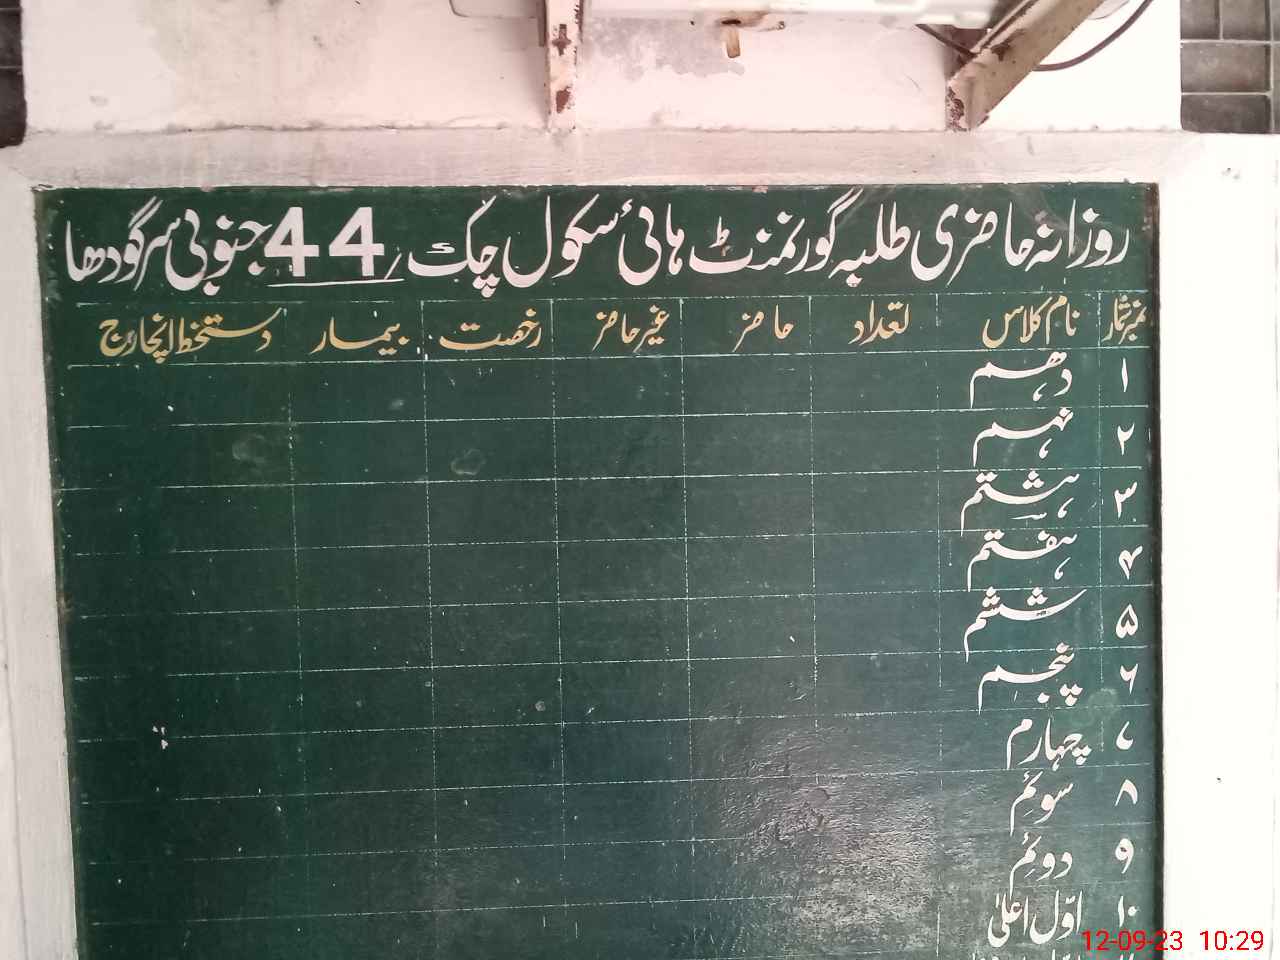 روزانہ حاضری طلبہ گورنمنٹ ہائی سکول چک 44 جنوبی سرگودھا
نمبر شمار نام کلاس تعداد حاضر غیر حاضر رخصت بیمار دستخط انچارج
۱ دہم
۲ نہم
۳ ہشتم
۴ ہفتم
۵ ششم
۶ پنجم
۷ چہارم
۸ سوئم
۹ دوئم
۱۰ اوّل اعلیٰ
12-09-23 10:29